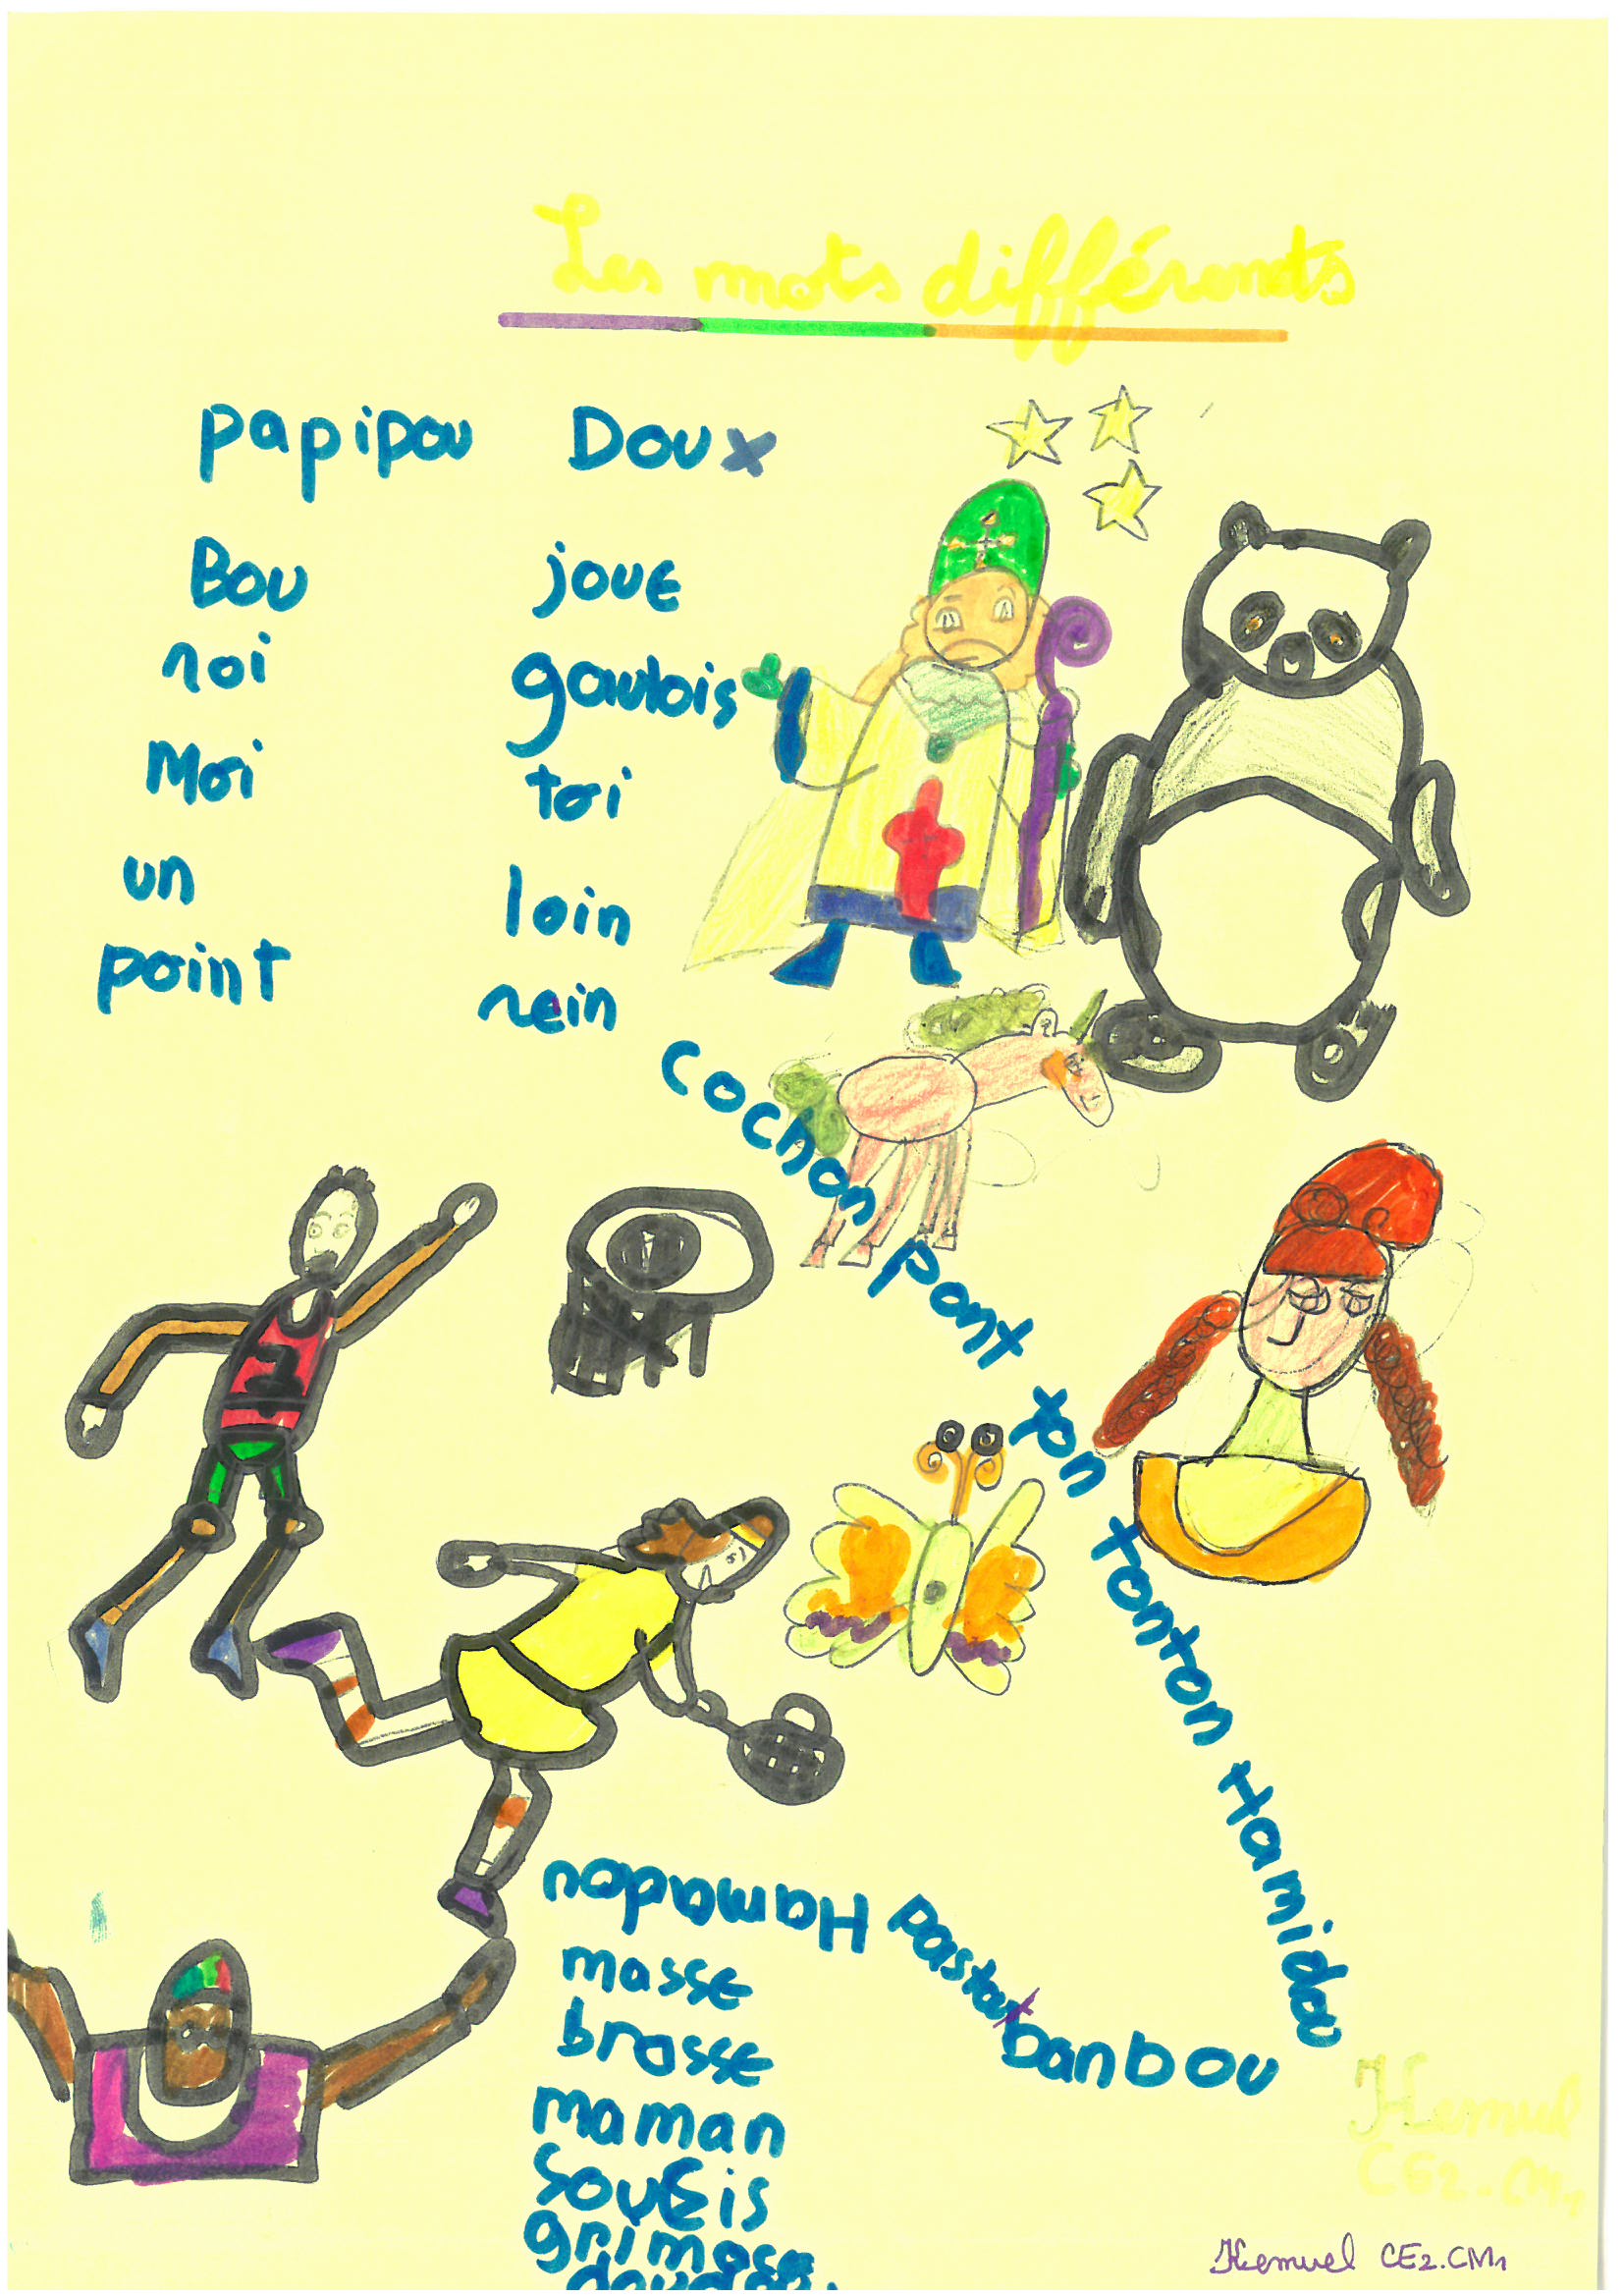 Les mots différents
papipou Doux
Bou joue
roi gaulois
Moi toi
un loin
point rein
cochon pont ton tonton Hamidou
banbou
Hamadou
masse
brasse
maman
grimace
Kemuel
CE2.CM1
Kemuel CE2.CM1